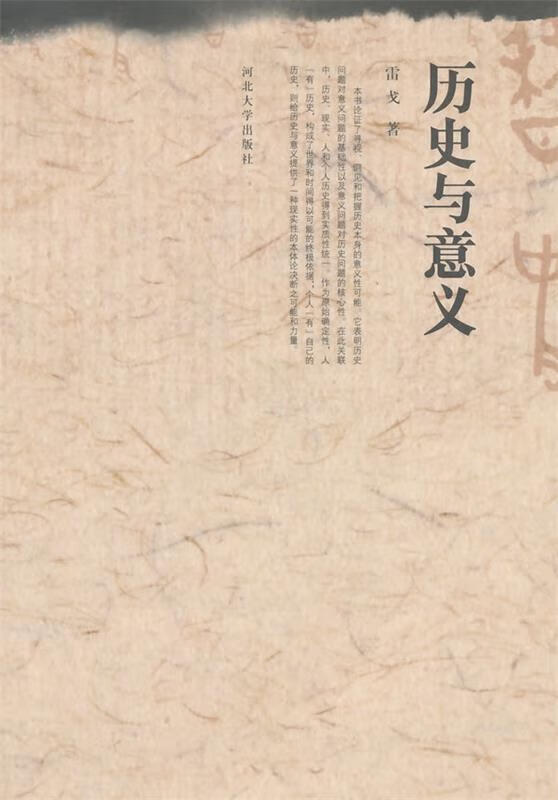 历史与意义
雷戈 著
本书论证了寻视、洞见和把握历史本身的意义性可能。它表明历史
问题对意义问题的基础性以及意义问题对历史问题的核心性。在此关联
中，历史、现实、人和个人历史得到实质性统一。作为原始确定性，人
“有”历史，构成了世界和时间得以可能的终极依据；个人“有”自己的
历史，则给历史与意义提供了一种现实性的本体论决断之可能和力量。
河北大学出版社